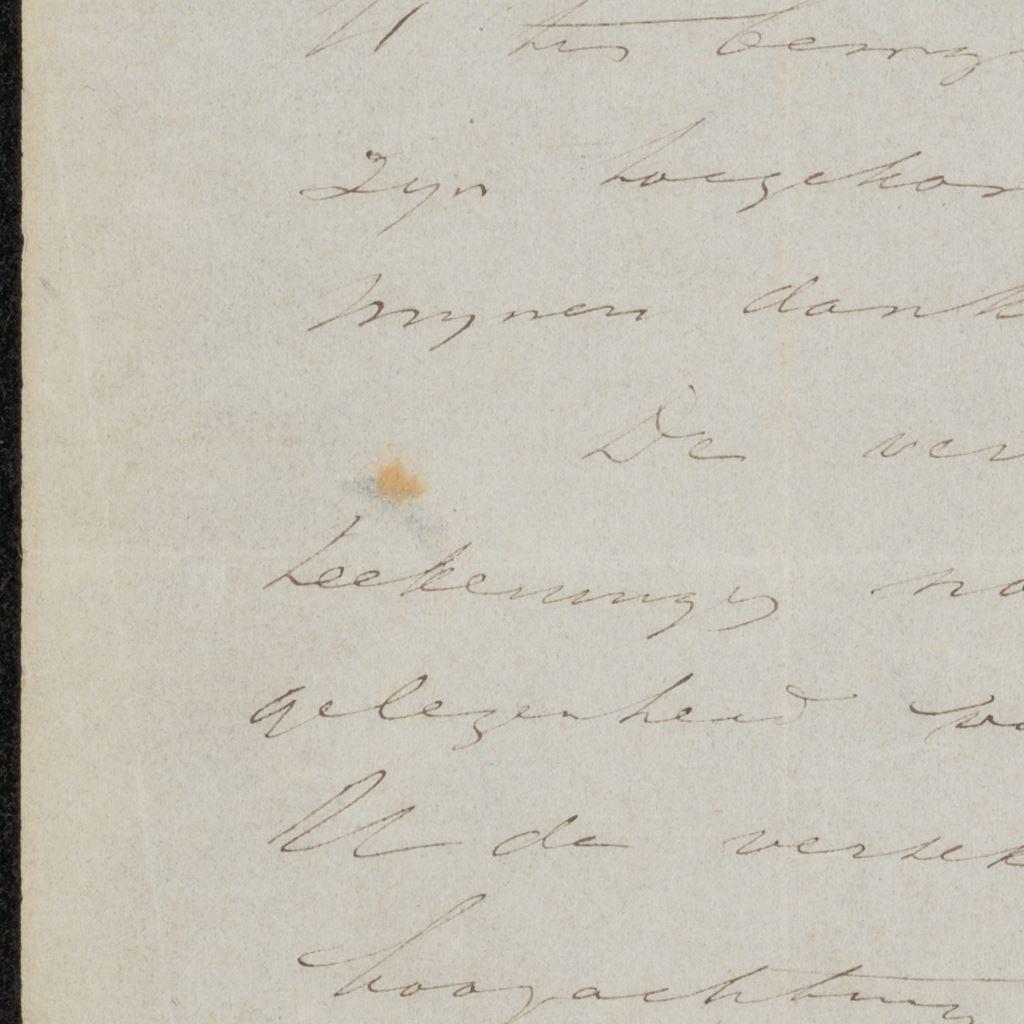 U ten bewyz
zyn toegekom
mynen dank
De ver
teekeningen na
gelegenheid va
U de verzek
hoogachting